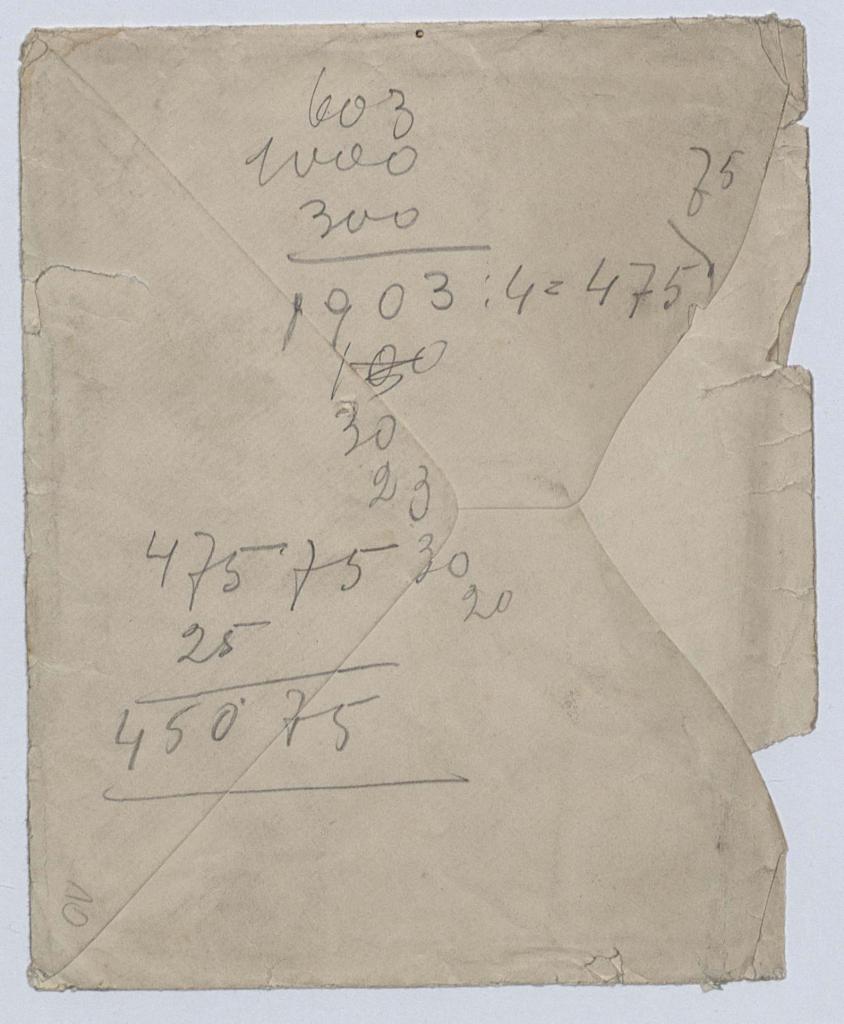 603
1000
300
75
1903 : 4 = 475
100
30
23
475 75 30
20
25
450 75
10